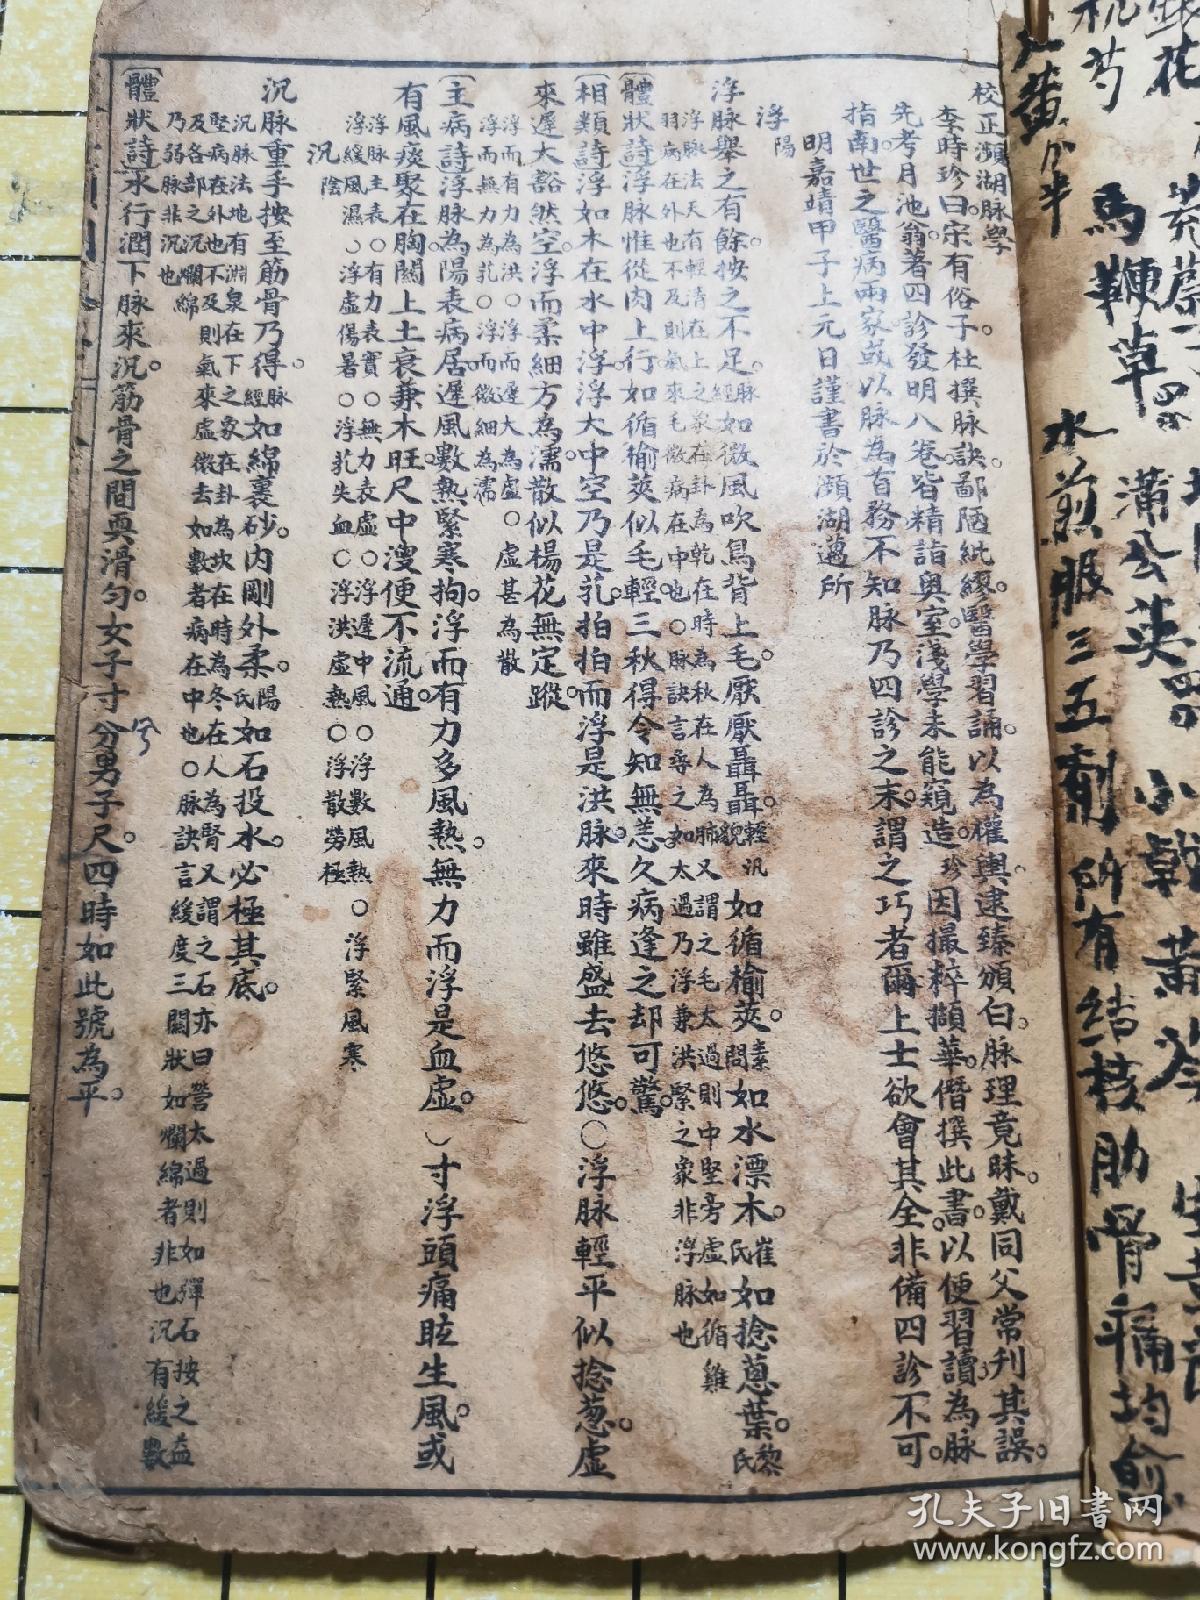 校正瀕湖脉學
李時珍曰宋有俗子。杜撰脉訣。鄙陋紕繆。醫學習誦。以為權輿。逮臻頒白。脉理竟昧。戴同父常刋其誤。
先考月池翁。著四診發明八卷。皆精詣奧室。淺學未能窺造。珍因撮粹擷華。僭撰此書。以便習讀。為脉
指南。世之醫病兩家。咸以脉為首務。不知脉乃四診之末。謂之巧者爾。上士欲會其全。非備四診不可。
明嘉靖甲子上元日謹書於瀕湖薖所
浮陽
浮脉舉之有餘。按之不足。脉經如微風吹鳥背上毛。厭厭聶聶。輕汎貌如循榆莢。素問如水漂木。崔氏如捻蔥葉。黎氏
浮脉法天有輕清在上之象在卦為乾在時為秋在人為肺又謂之毛太過則中堅旁虛如循雞
羽病在外也不及則氣來毛微病在中也○脉訣言尋之如太過乃浮兼洪緊之象非浮脉也
〔體狀詩〕浮脉惟從肉上行。如循榆莢似毛輕。三秋得令知無恙。久病逢之却可驚。
〔相類詩〕浮如木在水中浮。浮大中空乃是芤。拍拍而浮是洪脉。來時雖盛去悠悠。○浮脉輕平似捻葱。虛
來遲大豁然空。浮而柔細方為濡。散似楊花無定蹤。
浮而有力為洪○浮而遲大為虛○虛甚為散
浮而無力為芤○浮而微細為濡
〔主病詩〕浮脉為陽表病居。遲風數熱緊寒拘。浮而有力多風熱。無力而浮是血虛。○寸浮頭痛眩生風。或
有風痰聚在胸。關上土衰兼木旺。尺中溲便不流通。
浮脉主表○有力表實○無力表虛○浮遲中風○浮數風熱○浮緊風寒
浮緩風濕○浮虛傷暑○浮芤失血○浮洪虛熱○浮散勞極
沉陰
沉脉重手按至筋骨乃得。脉經如綿裹砂。內剛外柔。陽氏如石投水。必極其底。
沉脉法地有淵泉在下之象在卦為坎在時為冬在人為腎又謂之石亦曰營太過則如彈石按之益
堅病在外也不及則氣來虛微去如數者病在中也○脉訣言緩度三關狀如爛綿者非也沉有緩數
及各部之沉爛綿
乃弱脉非沉也
〔體狀詩〕水行潤下脉來沉。筋骨之間耎滑勻。女子寸分男子尺。四時如此號為平。
馬鞭草
蒲公英
水煎服三五剂所有结核肋骨痛均愈
孔夫子旧书网
www.kongfz.com